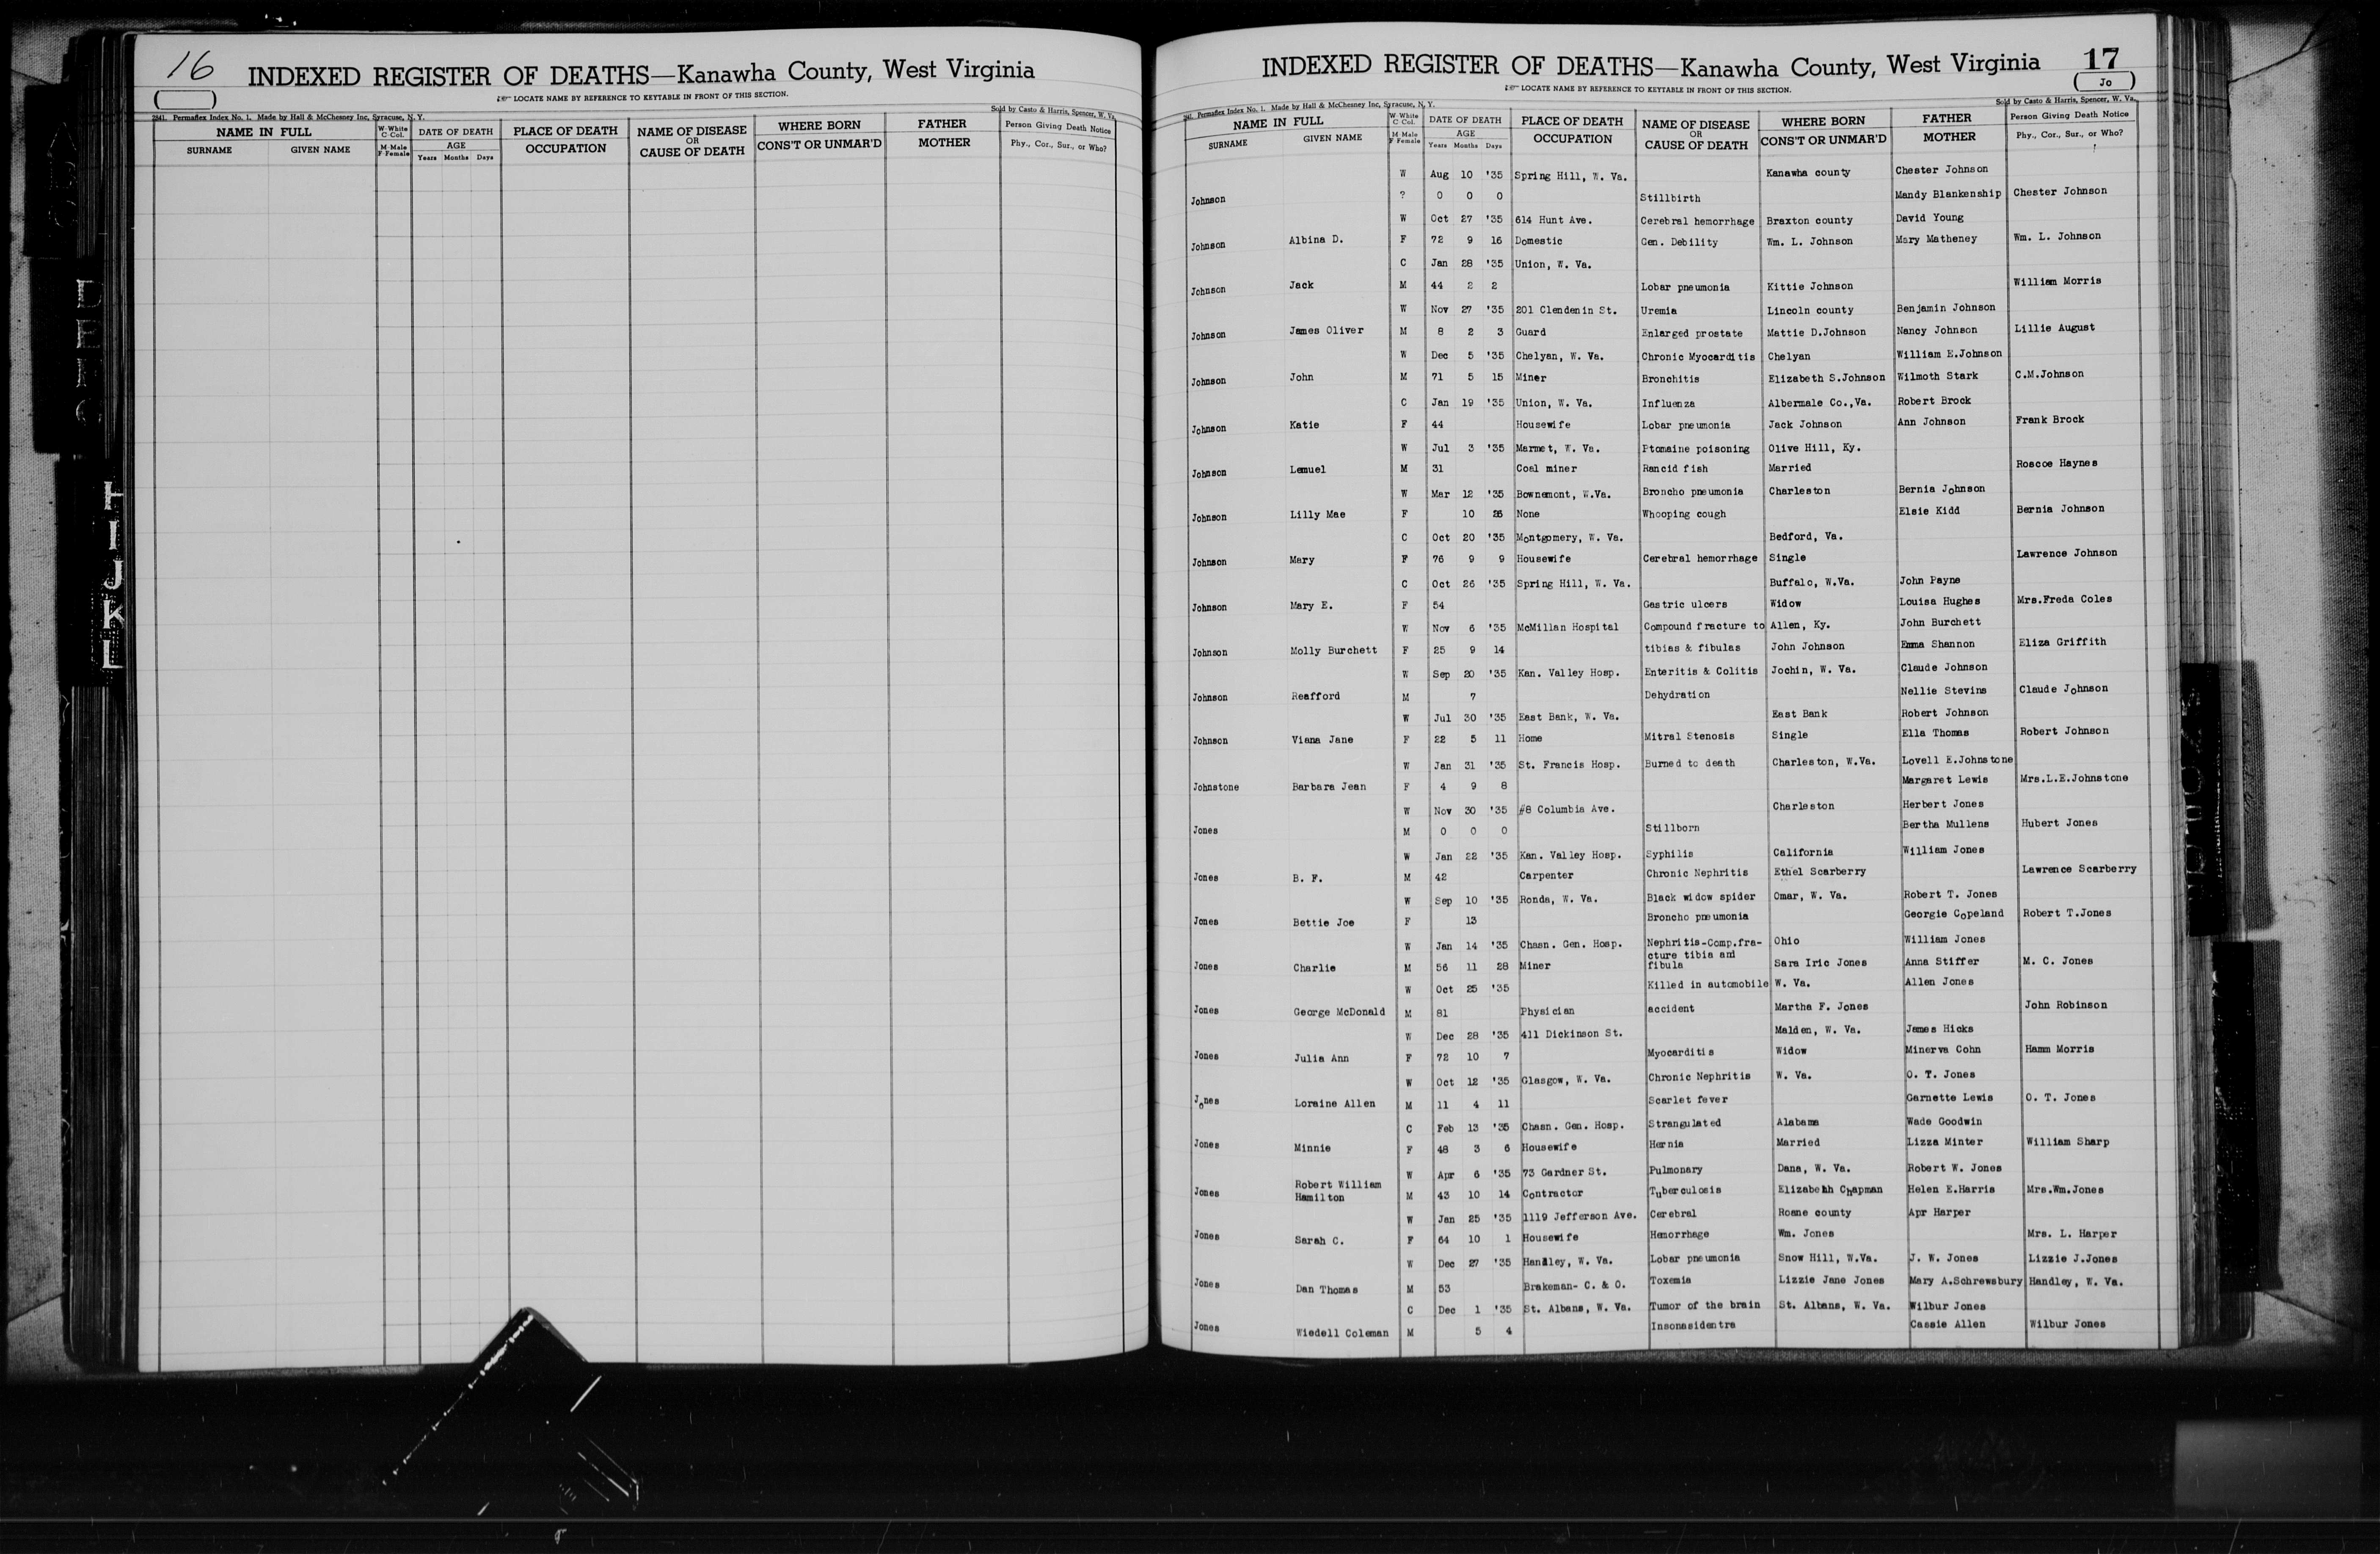 16
INDEXED REGISTER OF DEATHS—Kanawha County, West Virginia
LOCATE NAME BY REFERENCE TO KEYTABLE IN FRONT OF THIS SECTION.
2841. Permaflex Index No. 1. Made by Hall & McChesney Inc, Syracuse, N. Y. Sold by Casto & Harris, Spencer, W. Va.
NAME IN FULL W-White C-Col. DATE OF DEATH PLACE OF DEATH NAME OF DISEASE OR CAUSE OF DEATH WHERE BORN FATHER Person Giving Death Notice
SURNAME GIVEN NAME M-Male F-Female AGE Years Months Days OCCUPATION CONS'T OR UNMAR'D MOTHER Phy., Cor., Sur., or Who?
H
I
J
K
L
INDEXED REGISTER OF DEATHS—Kanawha County, West Virginia 17
LOCATE NAME BY REFERENCE TO KEYTABLE IN FRONT OF THIS SECTION. (Jo)
Permaflex Index No. 1. Made by Hall & McChesney Inc, Syracuse, N. Y. Sold by Casto & Harris, Spencer, W. Va.
NAME IN FULL W-White C Col. DATE OF DEATH PLACE OF DEATH NAME OF DISEASE OR CAUSE OF DEATH WHERE BORN FATHER Person Giving Death Notice
SURNAME GIVEN NAME M Male F Female AGE Years Months Days OCCUPATION CONS'T OR UNMAR'D MOTHER Phy., Cor., Sur., or Who?
W Aug 10 '35 Spring Hill, W. Va. Kanawha county Chester Johnson
Johnson ? 0 0 0 Stillbirth Mandy Blankenship Chester Johnson
W Oct 27 '35 614 Hunt Ave. Cerebral hemorrhage Braxton county David Young
Johnson Albina D. F 72 9 16 Domestic Gen. Debility Wm. L. Johnson Mary Matheney Wm. L. Johnson
C Jan 28 '35 Union, W. Va.
Johnson Jack M 44 2 2 Lobar pneumonia Kittie Johnson William Morris
W Nov 27 '35 201 Clendenin St. Uremia Lincoln county Benjamin Johnson
Johnson James Oliver M 8 2 3 Guard Enlarged prostate Mattie D.Johnson Nancy Johnson Lillie August
W Dec 5 '35 Chelyan, W. Va. Chronic Myocarditis Chelyan William E.Johnson
Johnson John M 71 5 15 Miner Bronchitis Elizabeth S.Johnson Wilmoth Stark C.M.Johnson
C Jan 19 '35 Union, W. Va. Influenza Albermale Co.,Va. Robert Brock
Johnson Katie F 44 Housewife Lobar pneumonia Jack Johnson Ann Johnson Frank Brock
W Jul 3 '35 Marmet, W. Va. Ptomaine poisoning Olive Hill, Ky.
Johnson Lemuel M 31 Coal miner Rancid fish Married Roscoe Haynes
W Mar 12 '35 Bownemont, W.Va. Broncho pneumonia Charleston Bernia Johnson
Johnson Lilly Mae F 10 26 None Whooping cough Elsie Kidd Bernia Johnson
C Oct 20 '35 Montgomery, W. Va. Bedford, Va.
Johnson Mary F 76 9 9 Housewife Cerebral hemorrhage Single Lawrence Johnson
C Oct 26 '35 Spring Hill, W. Va. Buffalo, W.Va. John Payne
Johnson Mary E. F 54 Gastric ulcers Widow Louisa Hughes Mrs.Freda Coles
W Nov 6 '35 McMillan Hospital Compound fracture to Allen, Ky. John Burchett
Johnson Molly Burchett F 25 9 14 tibias & fibulas John Johnson Emma Shannon Eliza Griffith
W Sep 20 '35 Kan. Valley Hosp. Enteritis & Colitis Jochin, W. Va. Claude Johnson
Johnson Reafford M 7 Dehydration Nellie Stevins Claude Johnson
W Jul 30 '35 East Bank, W. Va. East Bank Robert Johnson
Johnson Viana Jane F 22 5 11 Home Mitral Stenosis Single Ella Thomas Robert Johnson
W Jan 31 '35 St. Francis Hosp. Burned to death Charleston, W.Va. Lovell E.Johnstone
Johnstone Barbara Jean F 4 9 8 Margaret Lewis Mrs.L.E.Johnstone
W Nov 30 '35 #8 Columbia Ave. Charleston Herbert Jones
Jones M 0 0 0 Stillborn Bertha Mullens Hubert Jones
W Jan 22 '35 Kan. Valley Hosp. Syphilis California William Jones
Jones B. F. M 42 Carpenter Chronic Nephritis Ethel Scarberry Lawrence Scarberry
W Sep 10 '35 Ronda, W. Va. Black widow spider Omar, W. Va. Robert T. Jones
Jones Bettie Joe F 13 Broncho pneumonia Georgie Copeland Robert T.Jones
W Jan 14 '35 Chasn. Gen. Hosp. Nephritis-Comp.fra- Ohio William Jones
Jones Charlie M 56 11 28 Miner cture tibia and fibula Sara Iric Jones Anna Stiffer M. C. Jones
W Oct 25 '35 Killed in automobile W. Va. Allen Jones
Jones George McDonald M 81 Physician accident Martha F. Jones John Robinson
W Dec 28 '35 411 Dickinson St. Malden, W. Va. James Hicks
Jones Julia Ann F 72 10 7 Myocarditis Widow Minerva Cohn Hamm Morris
W Oct 12 '35 Glasgow, W. Va. Chronic Nephritis W. Va. O. T. Jones
Jones Loraine Allen M 11 4 11 Scarlet fever Garnette Lewis O. T. Jones
C Feb 13 '35 Chasn. Gen. Hosp. Strangulated Alabama Wade Goodwin
Jones Minnie F 48 3 6 Housewife Hernia Married Lizza Minter William Sharp
W Apr 6 '35 73 Gardner St. Pulmonary Dana, W. Va. Robert W. Jones
Jones Robert William Hamilton M 43 10 14 Contractor Tuberculosis Elizabeth Chapman Helen E.Harris Mrs.Wm.Jones
W Jan 25 '35 1119 Jefferson Ave. Cerebral Roane county Apr Harper
Jones Sarah C. F 64 10 1 Housewife Hemorrhage Wm. Jones Mrs. L. Harper
W Dec 27 '35 Handley, W. Va. Lobar pneumonia Snow Hill, W.Va. J. W. Jones Lizzie J.Jones
Jones Dan Thomas M 53 Brakeman- C. & O. Toxemia Lizzie Jane Jones Mary A.Schrewsbury Handley, W. Va.
C Dec 1 '35 St. Albans, W. Va. Tumor of the brain St. Albans, W. Va. Wilbur Jones
Jones Wiedell Coleman M 5 4 Insonasidentra Cassie Allen Wilbur Jones